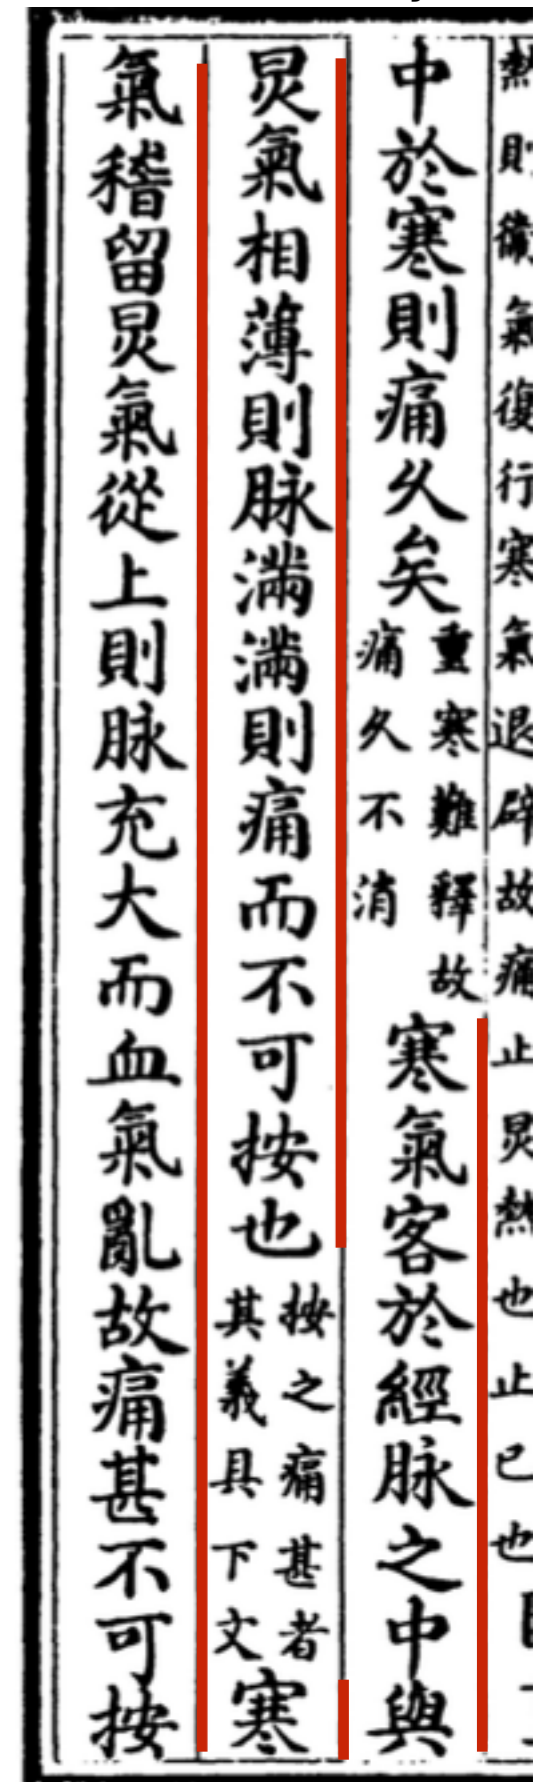 熱則衞氣復行寒氣退辟故痛止炅熱也止已也
中於寒則痛久矣
重寒難釋故
痛久不消
寒氣客於經脉之中與
炅氣相薄則脉滿滿則痛而不可按也
按之痛甚者
其義具下文
寒
氣稽留炅氣從上則脉充大而血氣亂故痛甚不可按